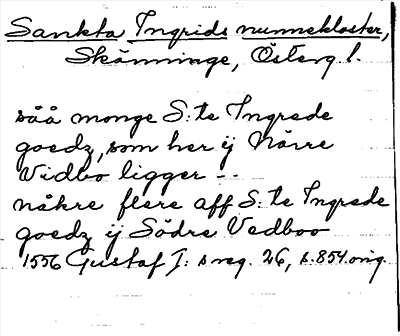 Sankta Ingrids nunnekloster,
Skänninge, Österg l.
såå monge S:te Ingrede
goedz, som her ij Nårre
Vidbo ligger --
nåkre flere aff S:te Ingrede
goedz ij Södre Vedboo
1556 Gustaf I: s reg. 26, s. 854. orig.